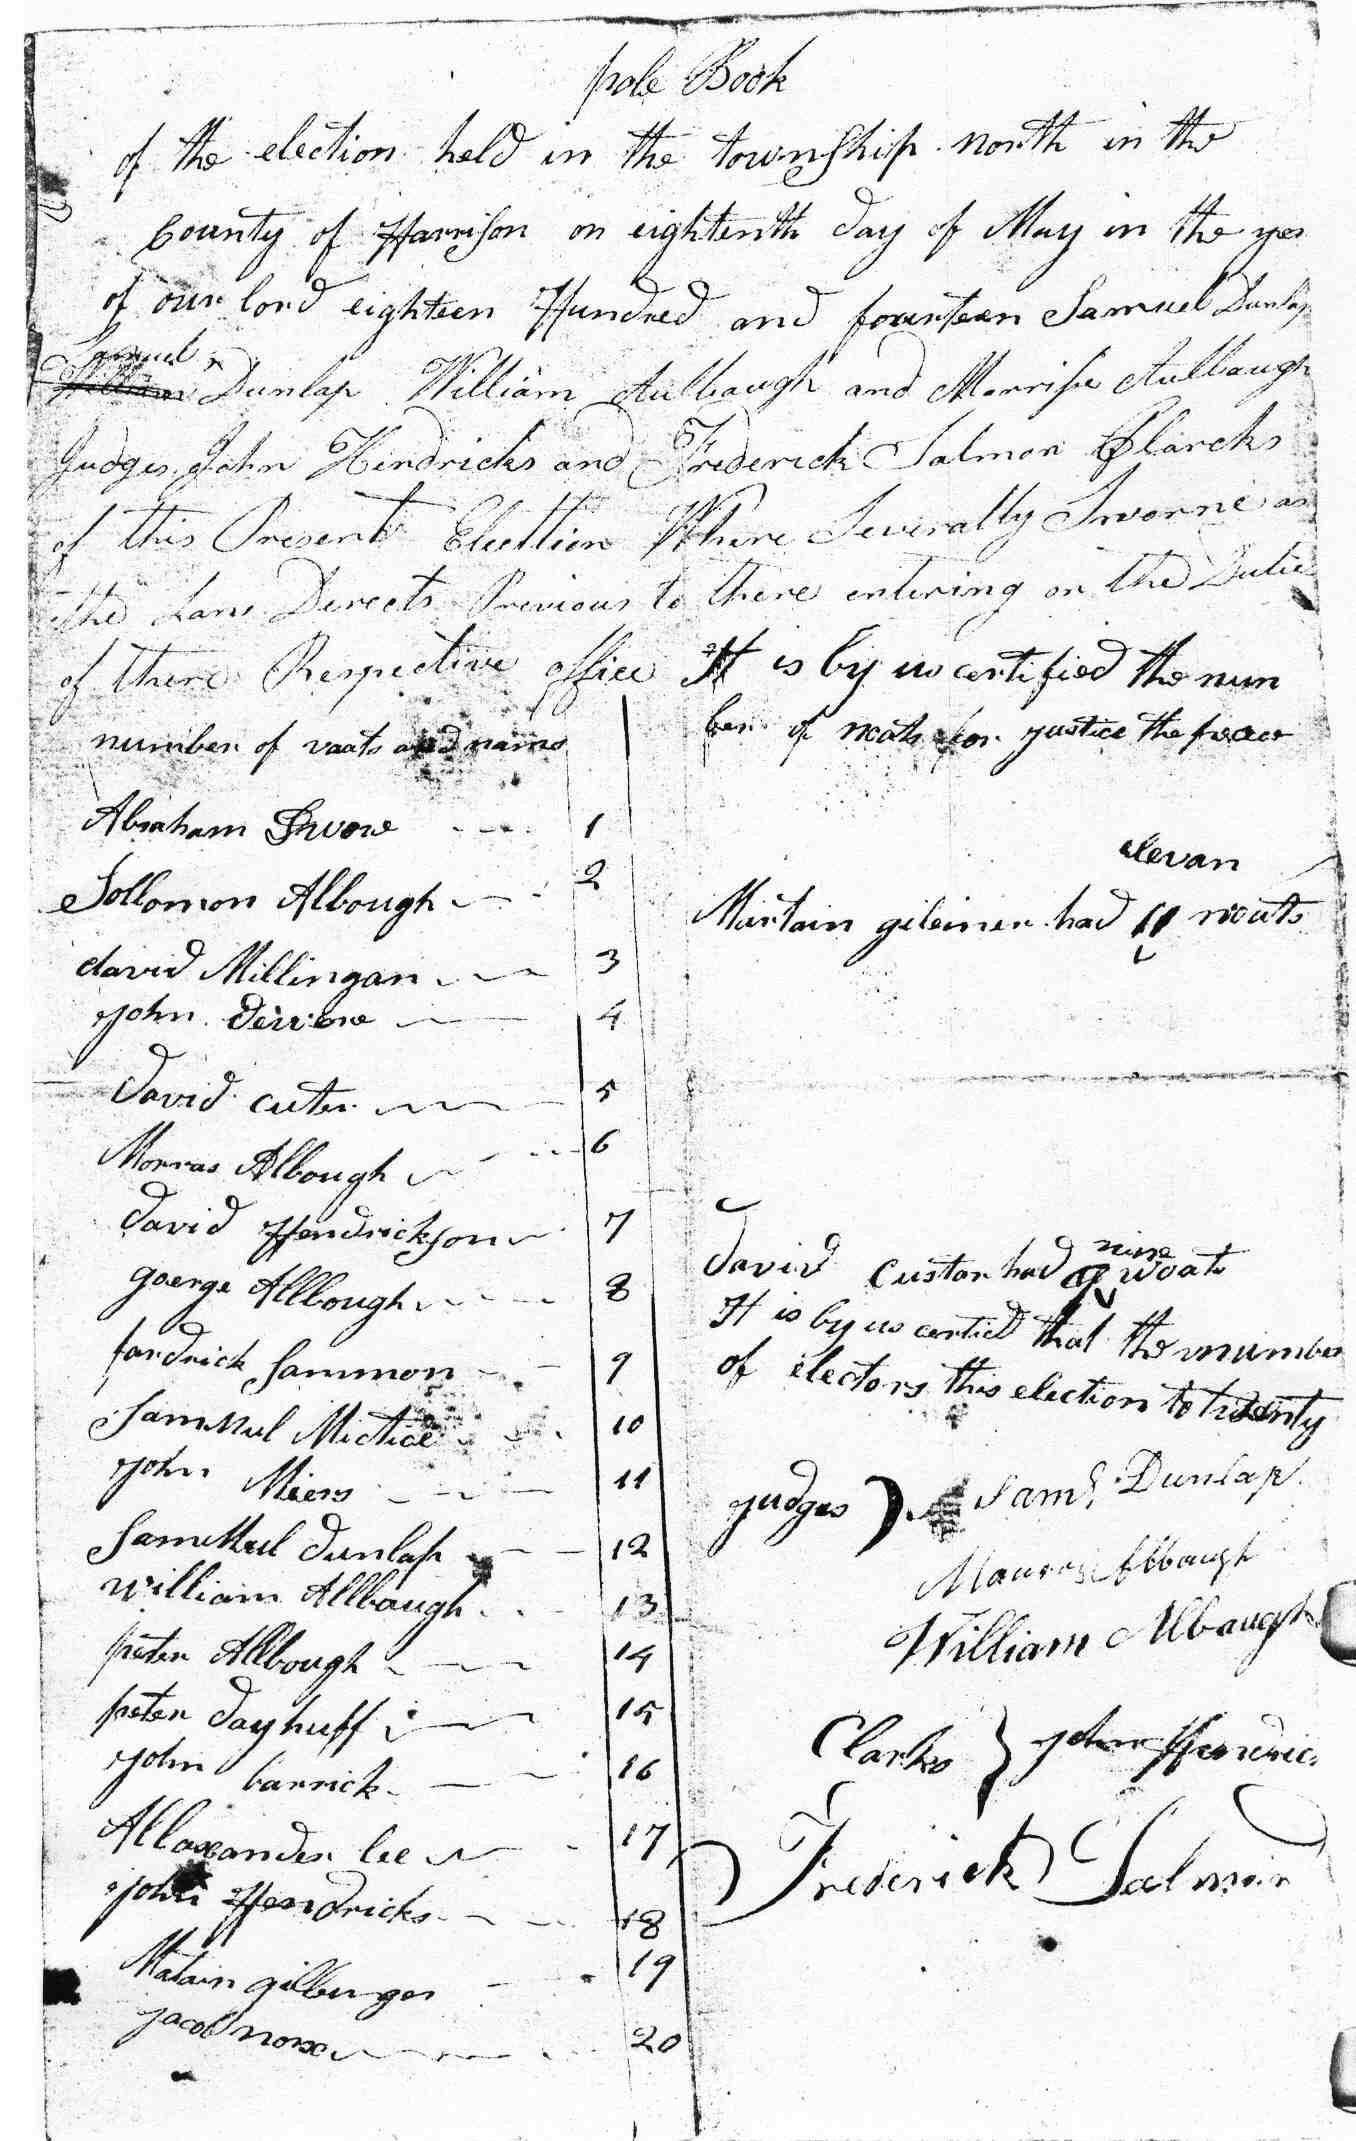 pole Book
of the election held in the township north in the
County of Harrison on eightenth day of May in the yea
of our lord eighteen Hundred and fourteen Samuel Dunlap
Samuel
William Dunlap William Aulbaugh and Morrise Aulbaugh
Judges John Hendricks and Frederick Salmon Clarcks
of this Present Election Where Severally Sworne as
the Law Derects Previous to there entering on the Dutie
of there Respective office
number of vaats and names
Abraham
Sollomon Albough 2
david Millingan 3
John 4
David cuter 5
Morras Albough 6
David Hendrickson 7
goerge Allbough 8
fardrick Sammon 9
Sammul Mictice 10
John Miers 11
Sammul Dunlap 12
William Allbaugh 13
peter Allbough 14
peter Dayhuff 15
John barrick 16
Allaxander lee 17
John Hendricks 18
Matain gilburger 19
Jacob 20
It is by us certified the num
ber of woats for justice the peace
elevan
Martain had 11 woats
nine
David Custar had 9 woats
It is by us certied that the number
of electors this election to twenty
Judges Saml Dunlap
Albaugh
William Albaugh
Clarks John Hendric
Frederick Salmon